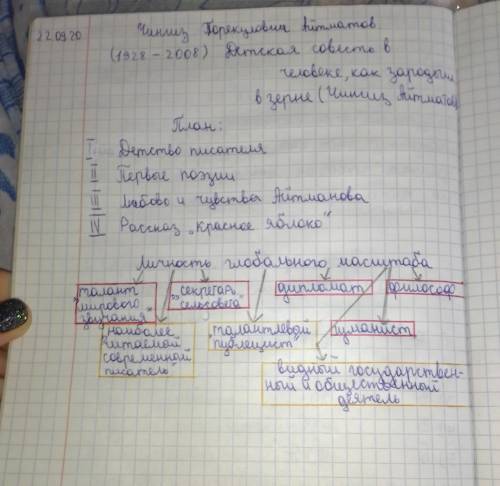 22.09.20
Чингиз Торекулович Айтматов
(1928 – 2008) Детская совесть в
человеке, как зародыш
в зерне (Чингиз Айтматов
План:
I Детство писателя
II Первые поэзии
III Любовь и чувства Айтманова
IV Рассказ „Красное яблоко"
Личность глобального масштаба
„талант мирового звучания"
„секретарь сельсовета"
дипломат
философ
наиболее читаемой современной писатель"
талантлевой публецист"
гуманист
видный государствен-
ный и общественный
деятель